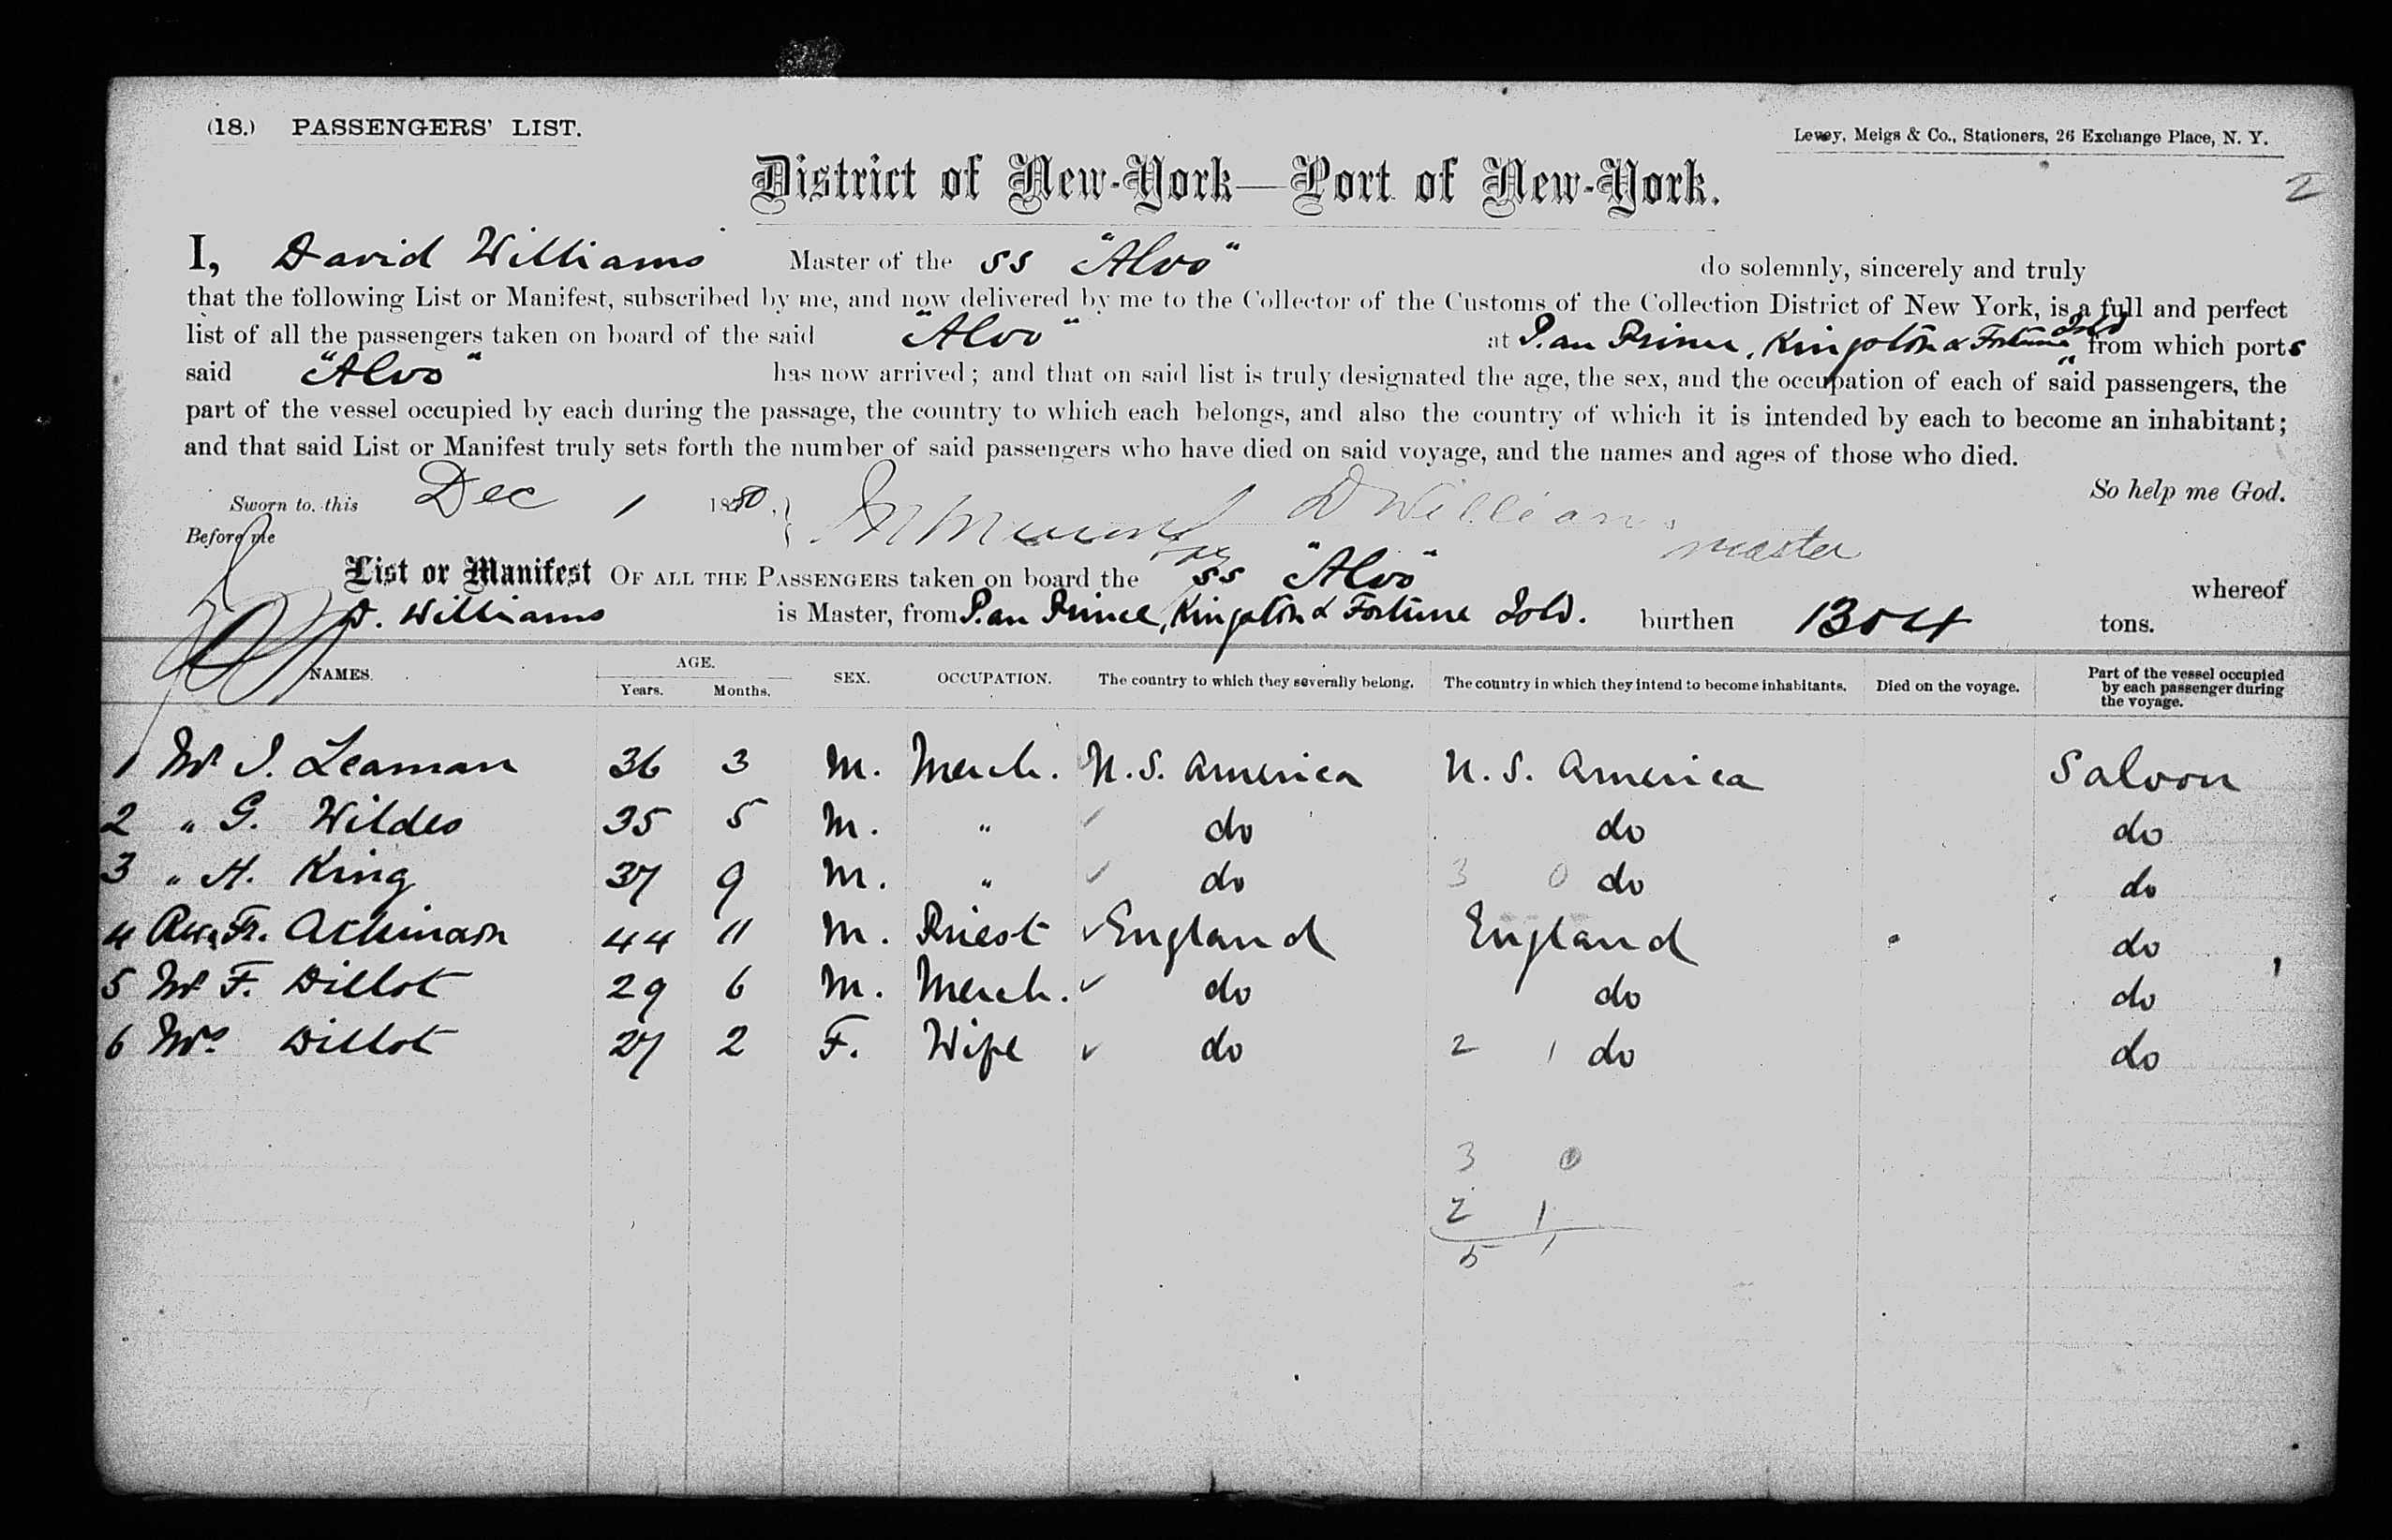 (18.) PASSENGERS' LIST.
Levey, Meigs & Co., Stationers, 26 Exchange Place, N. Y.
District of New-York—Port of New-York.
2
I, David Williams Master of the SS "Alvo" do solemnly, sincerely and truly
that the following List or Manifest, subscribed by me, and now delivered by me to the Collector of the Customs of the Collection District of New York, is a full and perfect
list of all the passengers taken on board of the said "Alvo" at P. au Prince, Kingston & Fortune Isld from which ports
said "Alvo" has now arrived; and that on said list is truly designated the age, the sex, and the occupation of each of said passengers, the
part of the vessel occupied by each during the passage, the country to which each belongs, and also the country of which it is intended by each to become an inhabitant;
and that said List or Manifest truly sets forth the number of said passengers who have died on said voyage, and the names and ages of those who died.
So help me God.
Sworn to, this Dec 1 18 D Williams
Before me master
List or Manifest OF ALL THE PASSENGERS taken on board the SS "Alvo" whereof
D. Williams is Master, from P. au Prince, Kingston & Fortune Isld. burthen 1304 tons.
NAMES. AGE. Years. Months. SEX. OCCUPATION. The country to which they severally belong. The country in which they intend to become inhabitants. Died on the voyage. Part of the vessel occupied by each passenger during the voyage.
1 Mr J. Leaman 36 3 M. Merch. U.S. America U.S. America Saloon
2 " G. Wildes 35 5 M. " do do do
3 " H. King 37 9 M. " do 3 0 do do
4 Rev. Fr. 44 11 M. Priest England England do
5 Mr F. Dillot 29 6 M. Merch. do do do
6 Mrs Dillot 27 2 F. Wife do 2 1 do do
3 0
2 1
5 1